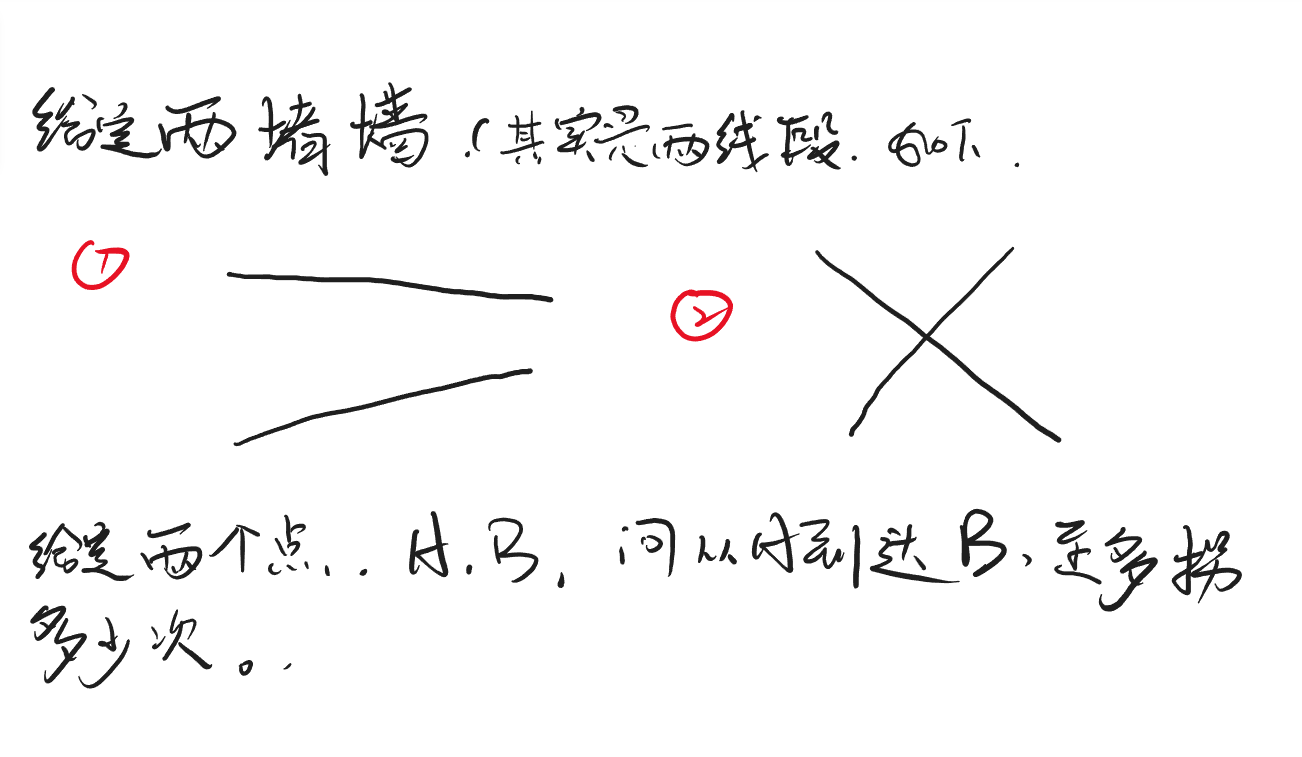 给定两堵墙.(其实是两线段.如下.
① ②
给定两个点..A.B,问从A到达B、至多拐
多少次。.